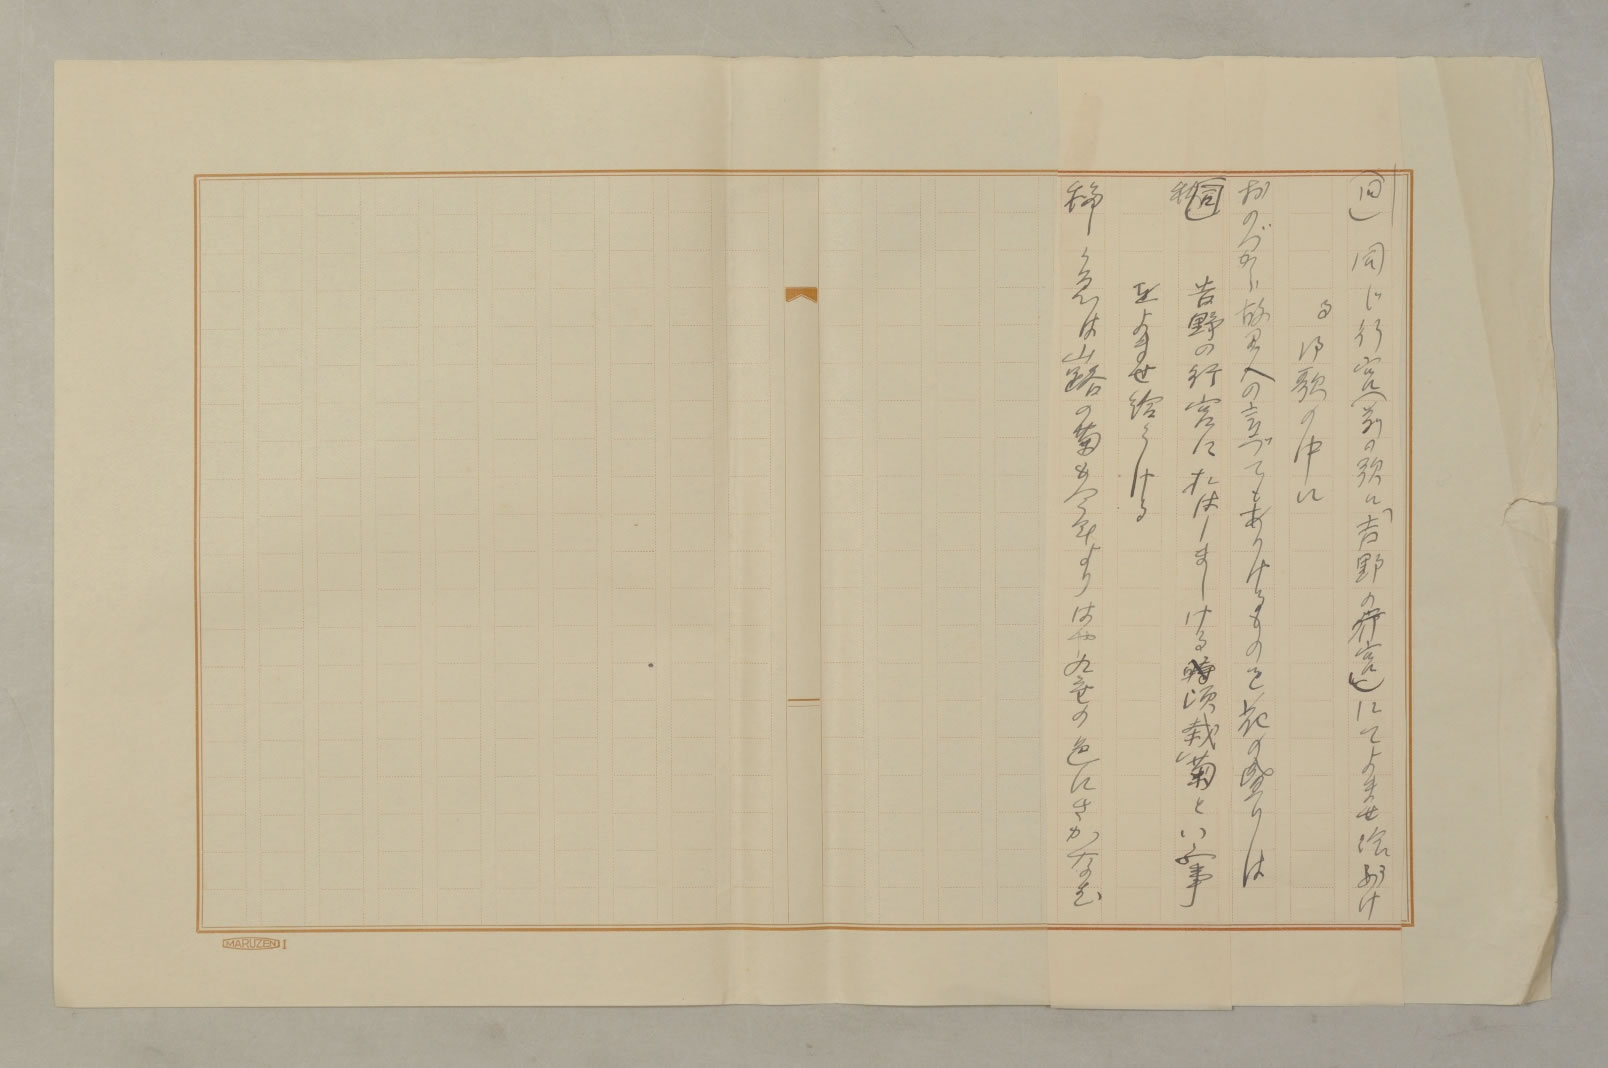 (同) 同じ行宮(前の歌に「吉野の行宮」)にてよませ給ひけ
る御歌の中に
おのづから故郷人の言づてもありけるものを花の盛りは
(同) 吉野の行宮におはしましける頃栽菊といふ事
をよませ給うける
稀 し 急は山路の菊も今年よりはや九重の色にさかなむ
MARUZEN I